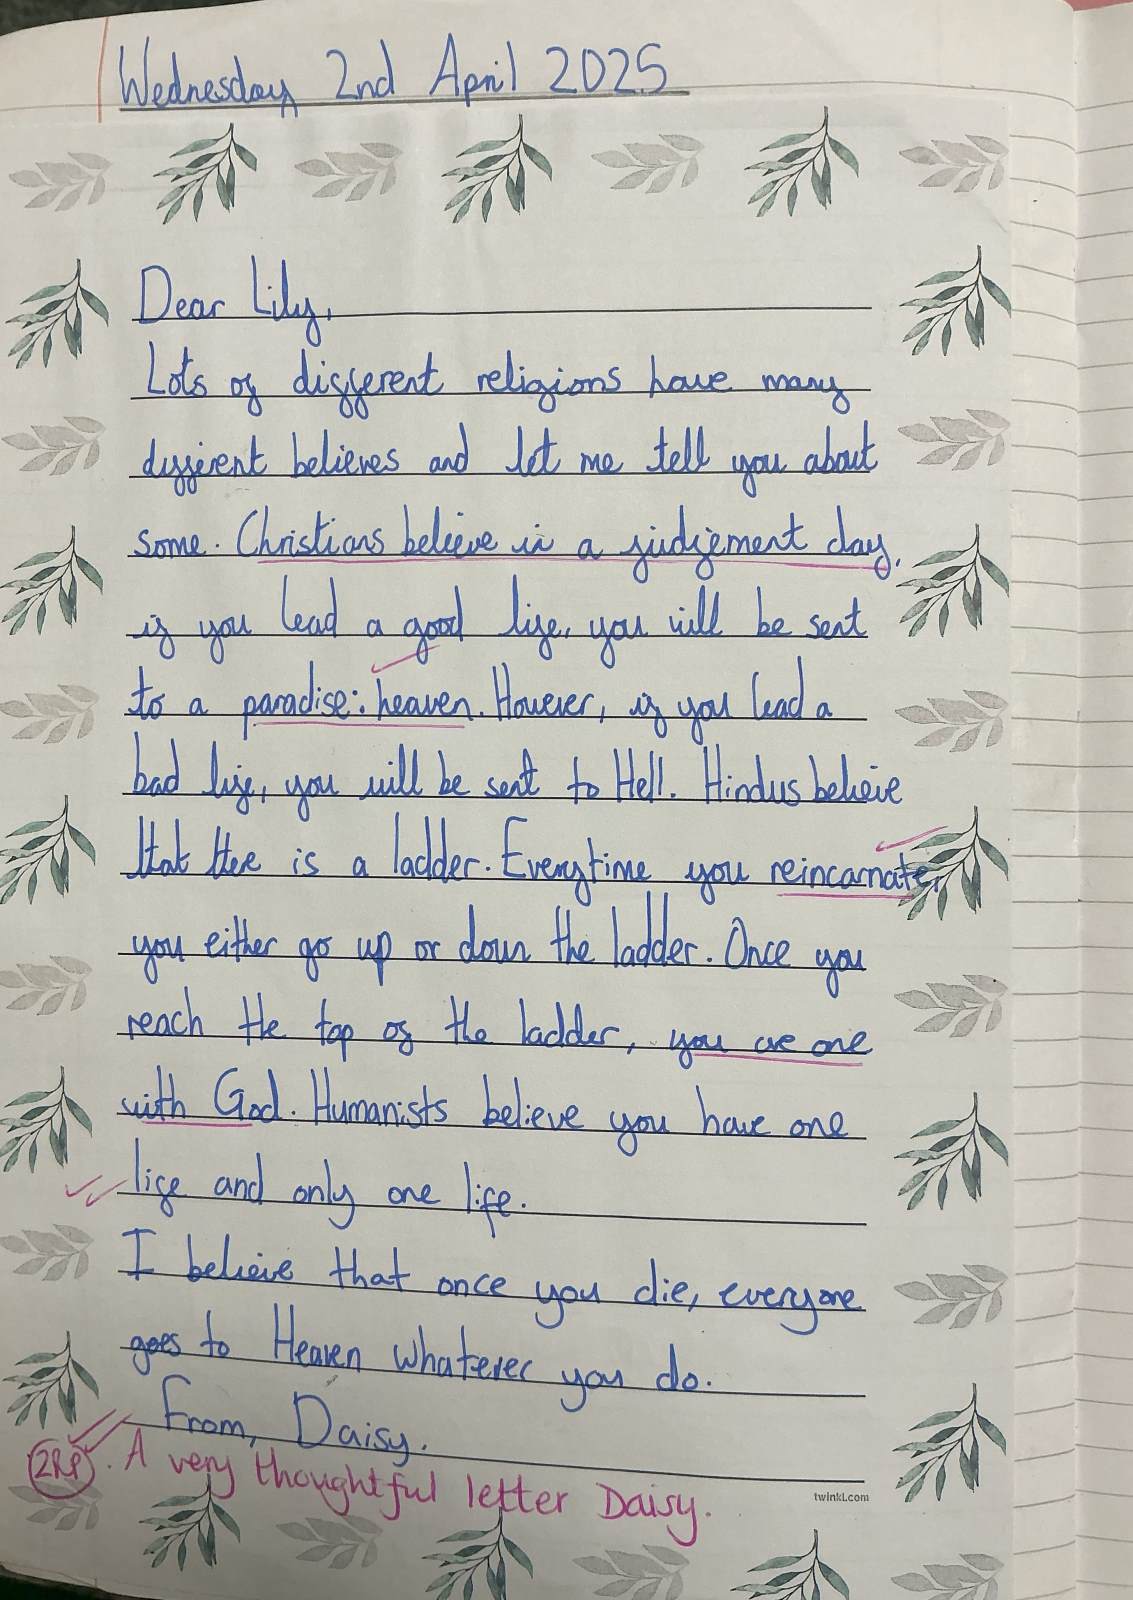 Wednesday 2nd April 2025
Dear Lily,
Lots of different religions have many
different believes and let me tell you about
some. Christians believe in a judgement day,
if you lead a good life, you will be sent
to a paradise: heaven. However, if you lead a
bad life, you will be sent to Hell. Hindus believe
that there is a ladder. Everytime you reincarnate,
you either go up or down the ladder. Once you
reach the top of the ladder, you are one
with God. Humanists believe you have one
life and only one life.
I believe that once you die, everyone
goes to Heaven whatever you do.
From, Daisy.
2RP. A very thoughtful letter Daisy.
twinkl.com